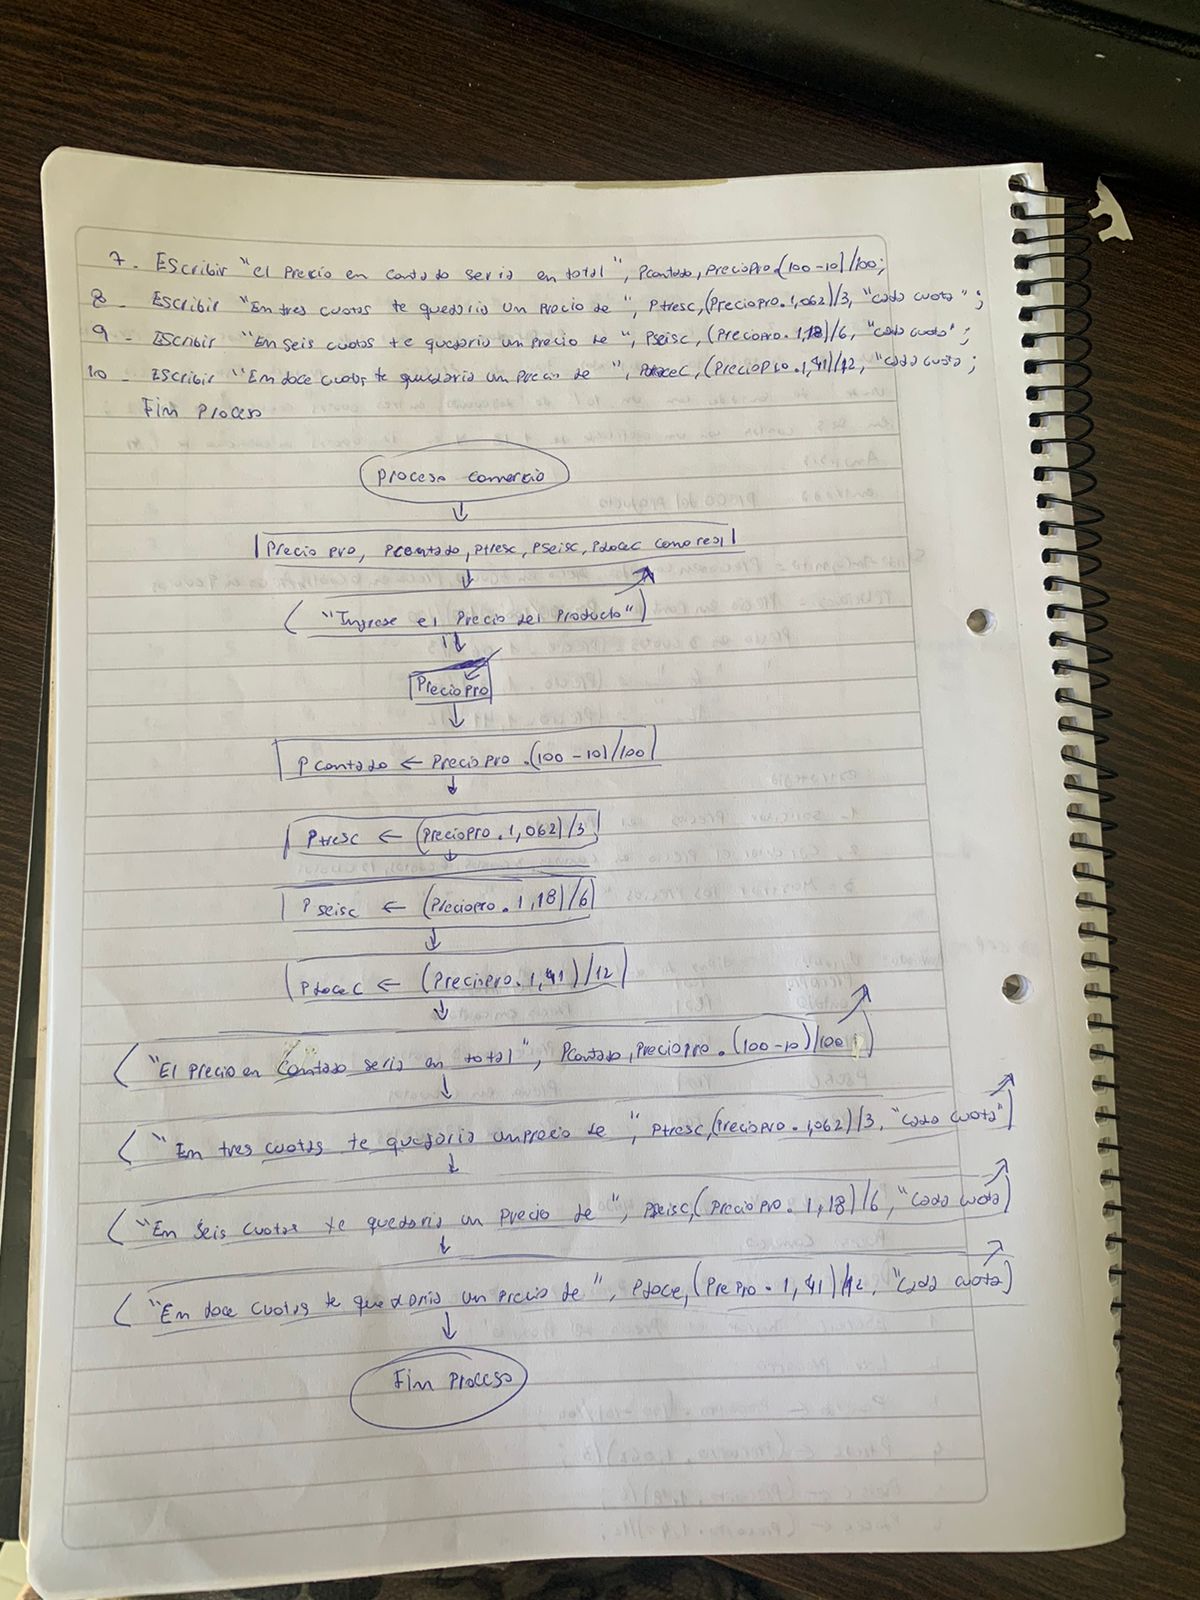 7. Escribir "el precio en contado seria en total", Pcontado, PrecioPro.(100-10)/100;
8- Escribir "En tres cuotas te quedaria un precio de ", Ptresc,(Preciopro.1,062)/3, "cada cuota";
9- Escribir "En seis cuotas te quedaria un precio de ", Pseisc, (Preciopro.1,18)/6, "cada cuota";
10- Escribir "En doce cuotas te quedaria un precio de ", PdoceC, (PrecioPro.1,41)/12, "cada cuota;
Fin Proceso
Proceso comercio
Precio pro, Pcontado, Ptresc, PSeisc, Pdocec como real
"Ingrese el Precio del Producto"
PrecioPro
Pcontado ← PrecioPro.(100-10)/100
Ptresc ← (PrecioPro.1,062)/3
Pseisc ← (Preciopro.1,18)/6
PdoceC ← (Preciopro.1,41)/12
"El Precio en Contado seria en total", Pcontado, Preciopro.(100-10)/100
"En tres cuotas te quedaria un precio de ", Ptresc,(Preciopro.1,062)/3, "cada cuota"
"En Seis cuotas te quedaria un precio de", Pseisc,(PrecioPro.1,18)/6, "Cada cuota
"En doce cuotas te quedaria un precio de", Pdoce, (PrePro.1,41)/12, "Cada cuota
Fin Proceso